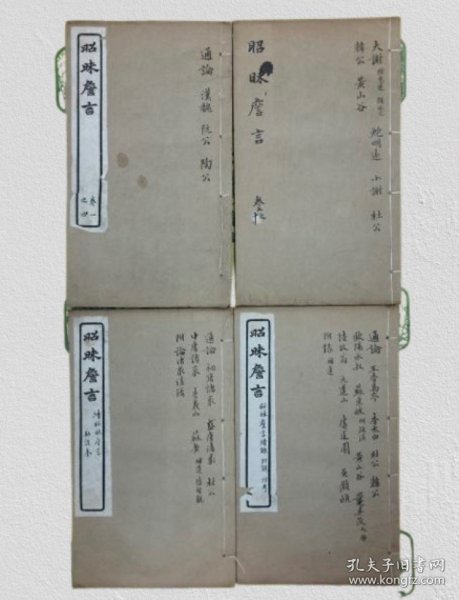 昭昧詹言
卷一
之四
通論 漢魏 阮公 陶公
昭昧詹言
卷五之十
大謝
鮑明遠 小謝 杜公
韓公 黄山谷
昭昧詹言
續昭昧詹言
通論 初唐諸家 盛唐諸家 杜公
中唐諸家 李義山 蘇黄
附論諸家詩話
昭昧詹言
通論 李太白 杜公 韓公
歐陽永叔 黄山谷
陸放翁 元遺山 虞道園 吴淵穎
孔夫子旧书网
www.kongfz.com